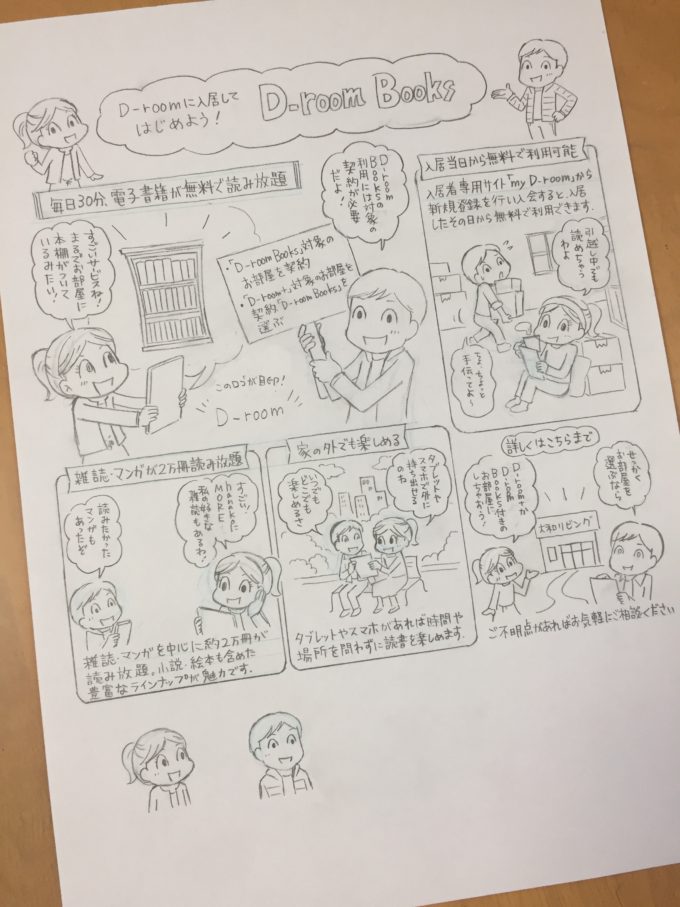 D-roomに入居して
はじめよう！
D-room Books
毎日30分、電子書籍が無料で読み放題
すごいサービスね！
まるでお部屋に
本棚がついて
いるみたい！
・「D-room Books」対象の
お部屋を契約
・「D-room+」対象のお部屋を
契約「D-room Books」を
選ぶ
D-room
Booksの
利用には対象の
契約が必要
だよ！
このロゴが目印！
D-room
入居当日から無料で利用可能
入居者専用サイト「my D-room」から
新規登録を行い入会すると、入居
したその日から無料で利用できます.
引越し中でも
読めちゃう
わよ
ちょ、ちょっと
手伝ってよ〜
雑誌・マンガが2万冊読み放題
すごい！
hanakoに
MORE…
私の好きな
雑誌もあるわ！
読みたかった
マンガも
あったぞ
雑誌・マンガを中心に約2万冊が
読み放題。小説・絵本も含めた
豊富なラインナップが魅力です.
家の外でも楽しめる
タブレットや
スマホで外に
持ち出せる
のね
いつでも
どこでも
楽しめるさ
タブレットやスマホがあれば時間や
場所を問わずに読書を楽しめます.
詳しくはこちらまで
せっかく
お部屋を
選ぶなら
D-room+か
D-room
Books付きの
お部屋に
しちゃおう！
大和リビング
ご不明点があればお気軽にご相談ください